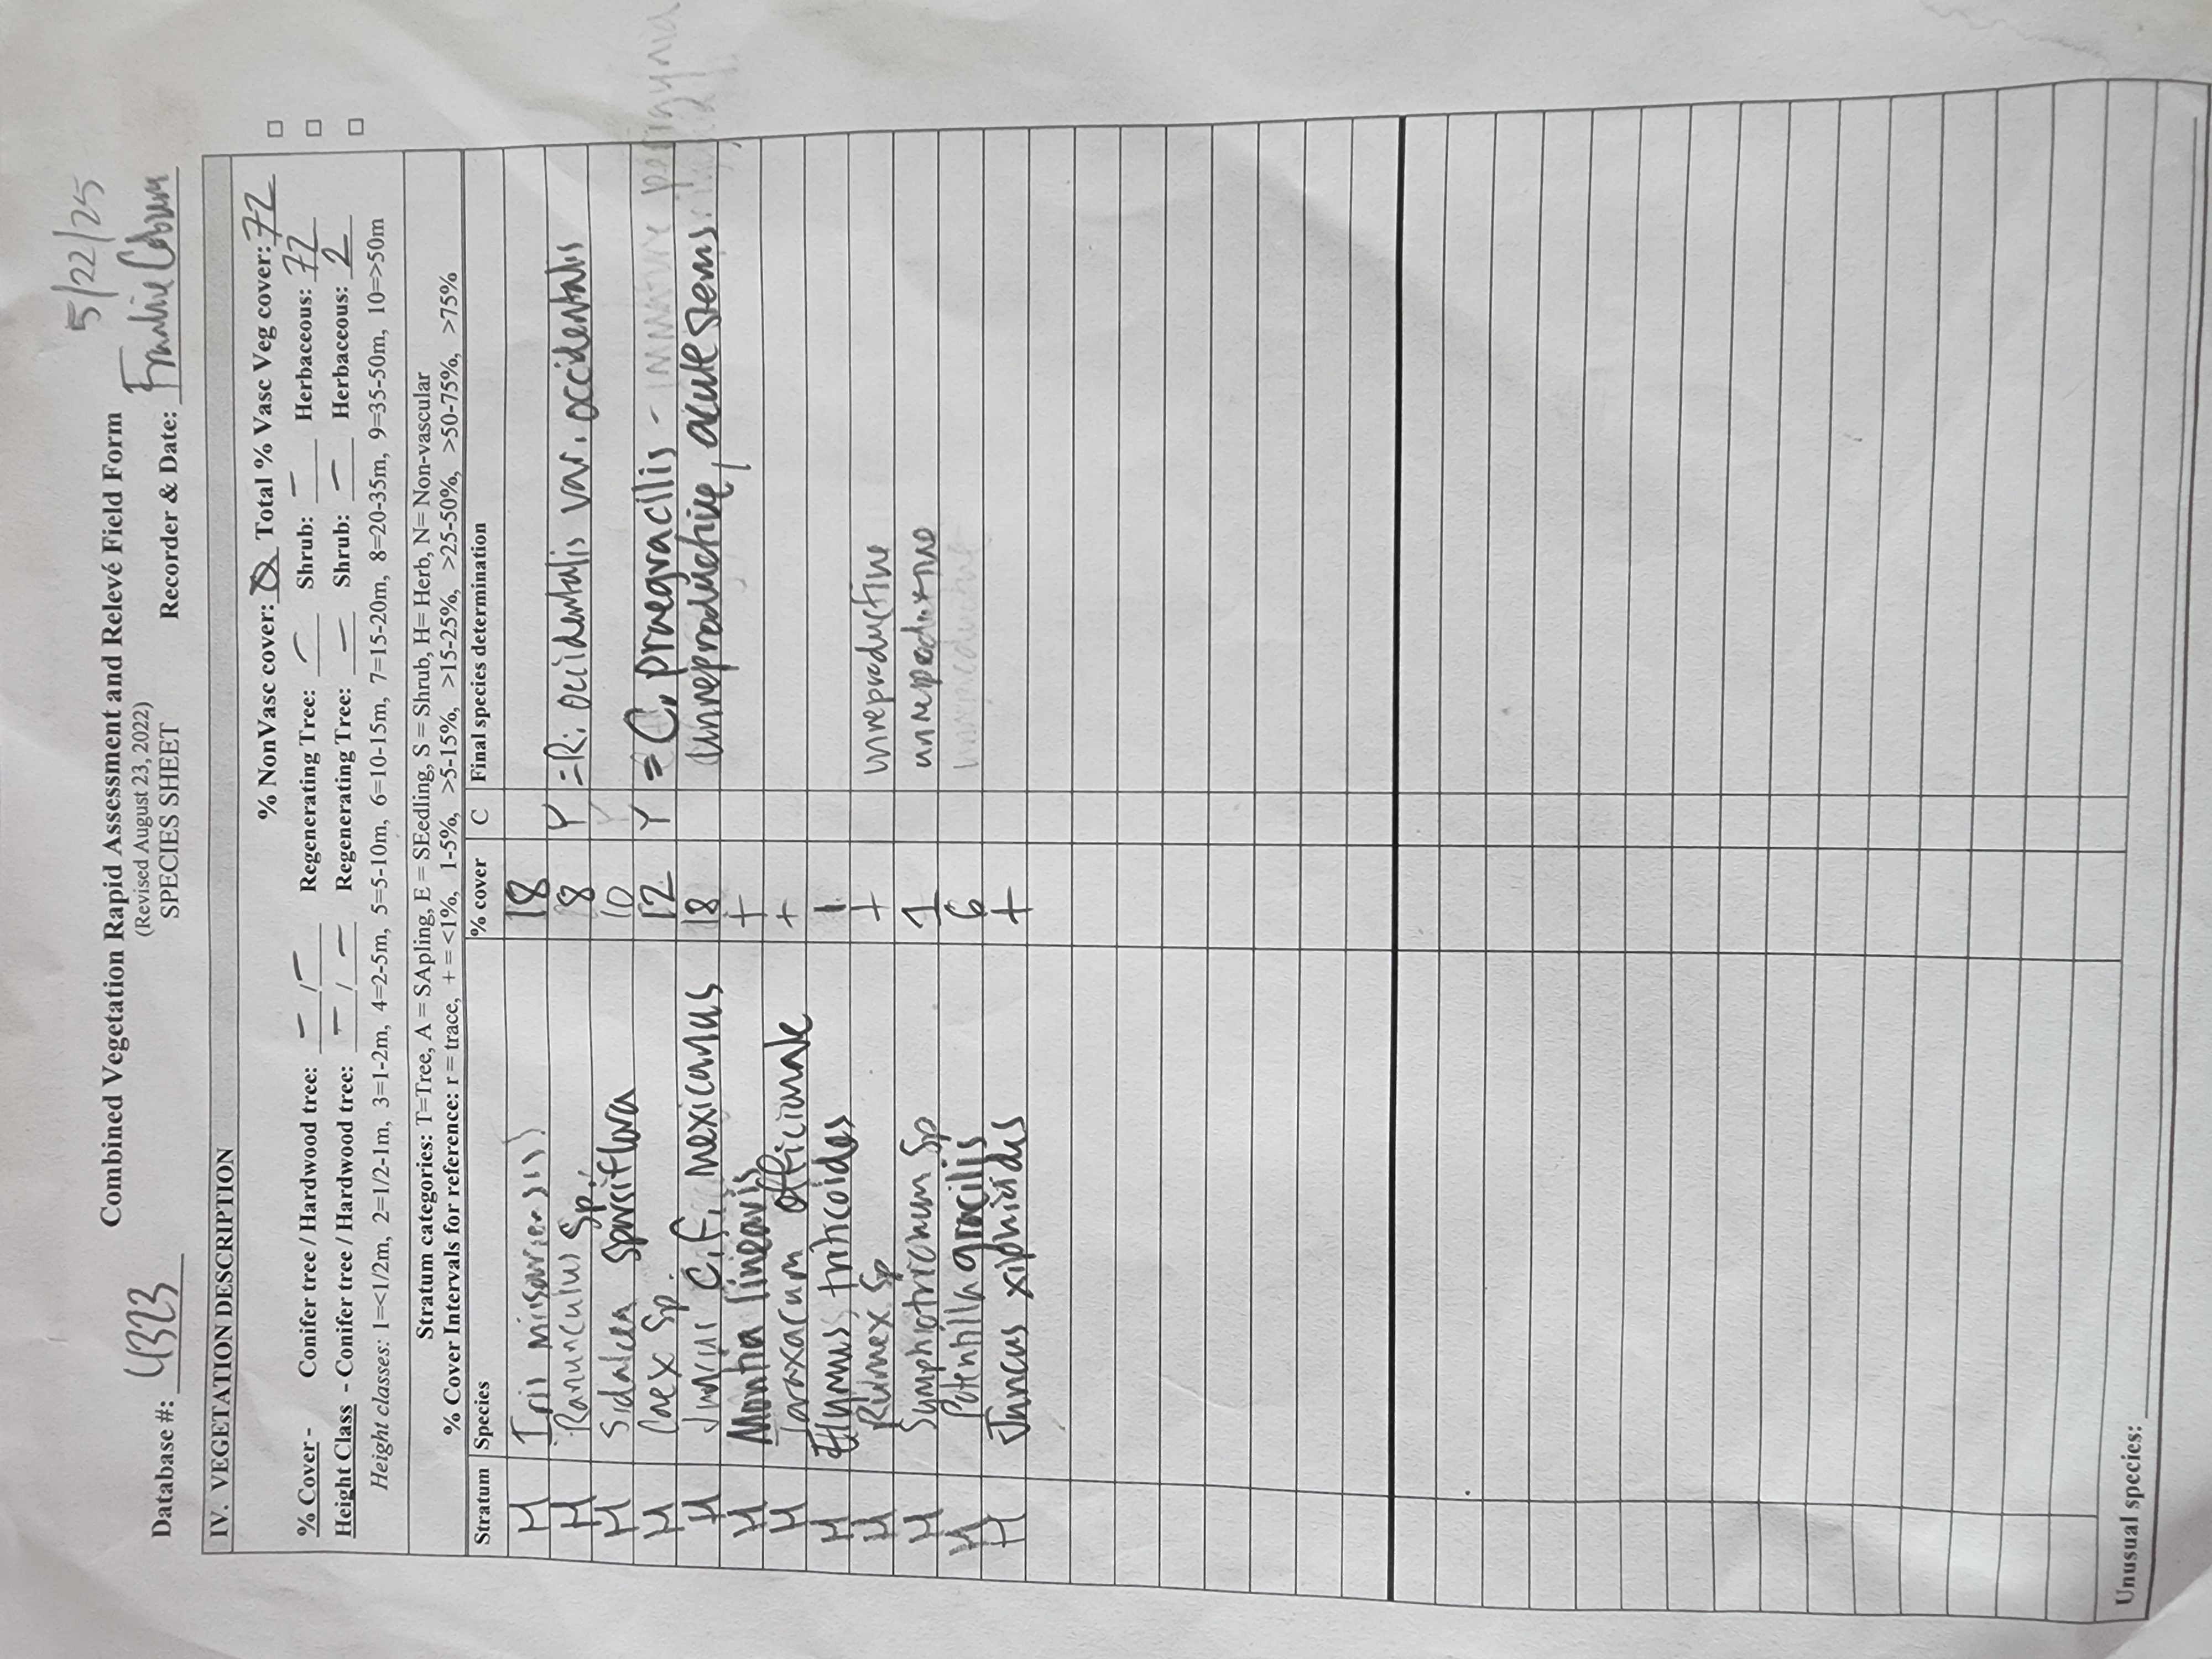 5/22/25
Combined Vegetation Rapid Assessment and Relevé Field Form
(Revised August 23, 2022)
Database #: 4323 SPECIES SHEET Recorder & Date: Frankie Coburn
IV. VEGETATION DESCRIPTION
% NonVasc cover: Ø Total % Vasc Veg cover: 72 □
% Cover - Conifer tree / Hardwood tree: – / – Regenerating Tree: – Shrub: – Herbaceous: 72 □
Height Class - Conifer tree / Hardwood tree: – / – Regenerating Tree: – Shrub: – Herbaceous: 2 □
Height classes: 1=<1/2m, 2=1/2-1m, 3=1-2m, 4=2-5m, 5=5-10m, 6=10-15m, 7=15-20m, 8=20-35m, 9=35-50m, 10=>50m
Stratum categories: T=Tree, A = SApling, E = SEedling, S = Shrub, H= Herb, N= Non-vascular
% Cover Intervals for reference: r = trace, + = <1%, 1-5%, >5-15%, >15-25%, >25-50%, >50-75%, >75%
Stratum Species % cover C Final species determination
H Iris missouriensis 18
H Ranunculus sp. 8 Y =R. occidentalis var. occidentalis
H Sidalcea sparsiflora 10 Y
H Carex sp. 12 Y = C. praegracilis - immature perigynia
H Juncus c.f. mexicanus 18 unreproductive, acute stems
H Montia linearis +
H Taraxacum officianale +
H Elymus triticoides 1
H Rumex sp + unreproductive
H Symphiotrichum sp 1 unreproductive
H Potentilla gracilis 6 unreproductive
H Juncus xiphioides +
Unusual species: